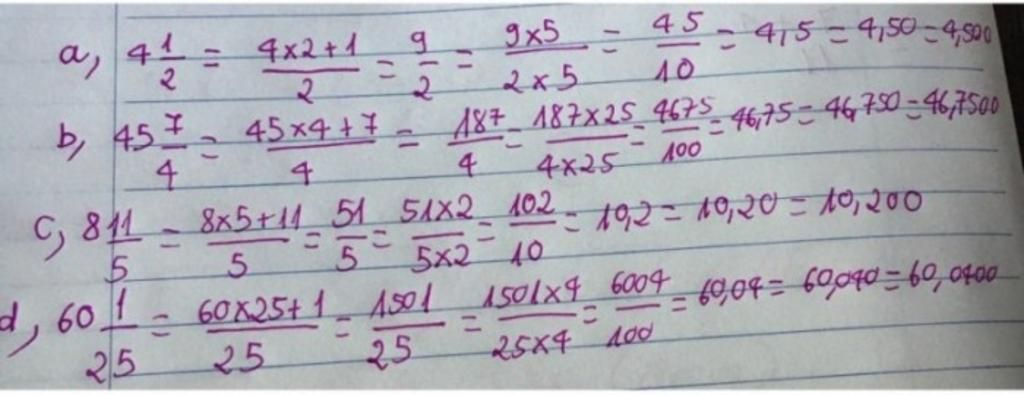 a, 4 1/2 = (4x2+1)/2 = 9/2 = (9x5)/(2x5) = 45/10 = 4,5 = 4,50 = 4,500
b, 45 7/4 = (45x4+7)/4 = 187/4 = (187x25)/(4x25) = 4675/100 = 46,75 = 46,750 = 46,7500
c, 8 11/5 = (8x5+11)/5 = 51/5 = (51x2)/(5x2) = 102/10 = 10,2 = 10,20 = 10,200
d, 60 1/25 = (60x25+1)/25 = 1501/25 = (1501x4)/(25x4) = 6004/100 = 60,04 = 60,040 = 60,0400